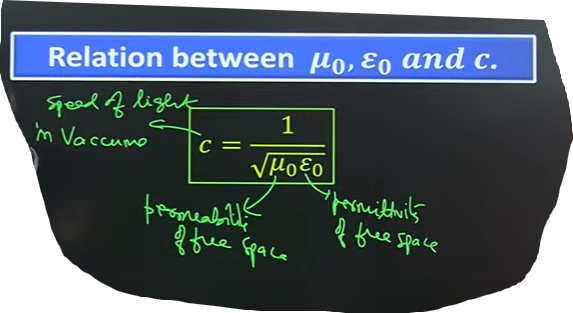 Relation between μ₀, ε₀ and c.
speed of light
in Vaccumo
c = 1/√μ₀ε₀
permeability
of free space
permittivity
of free space